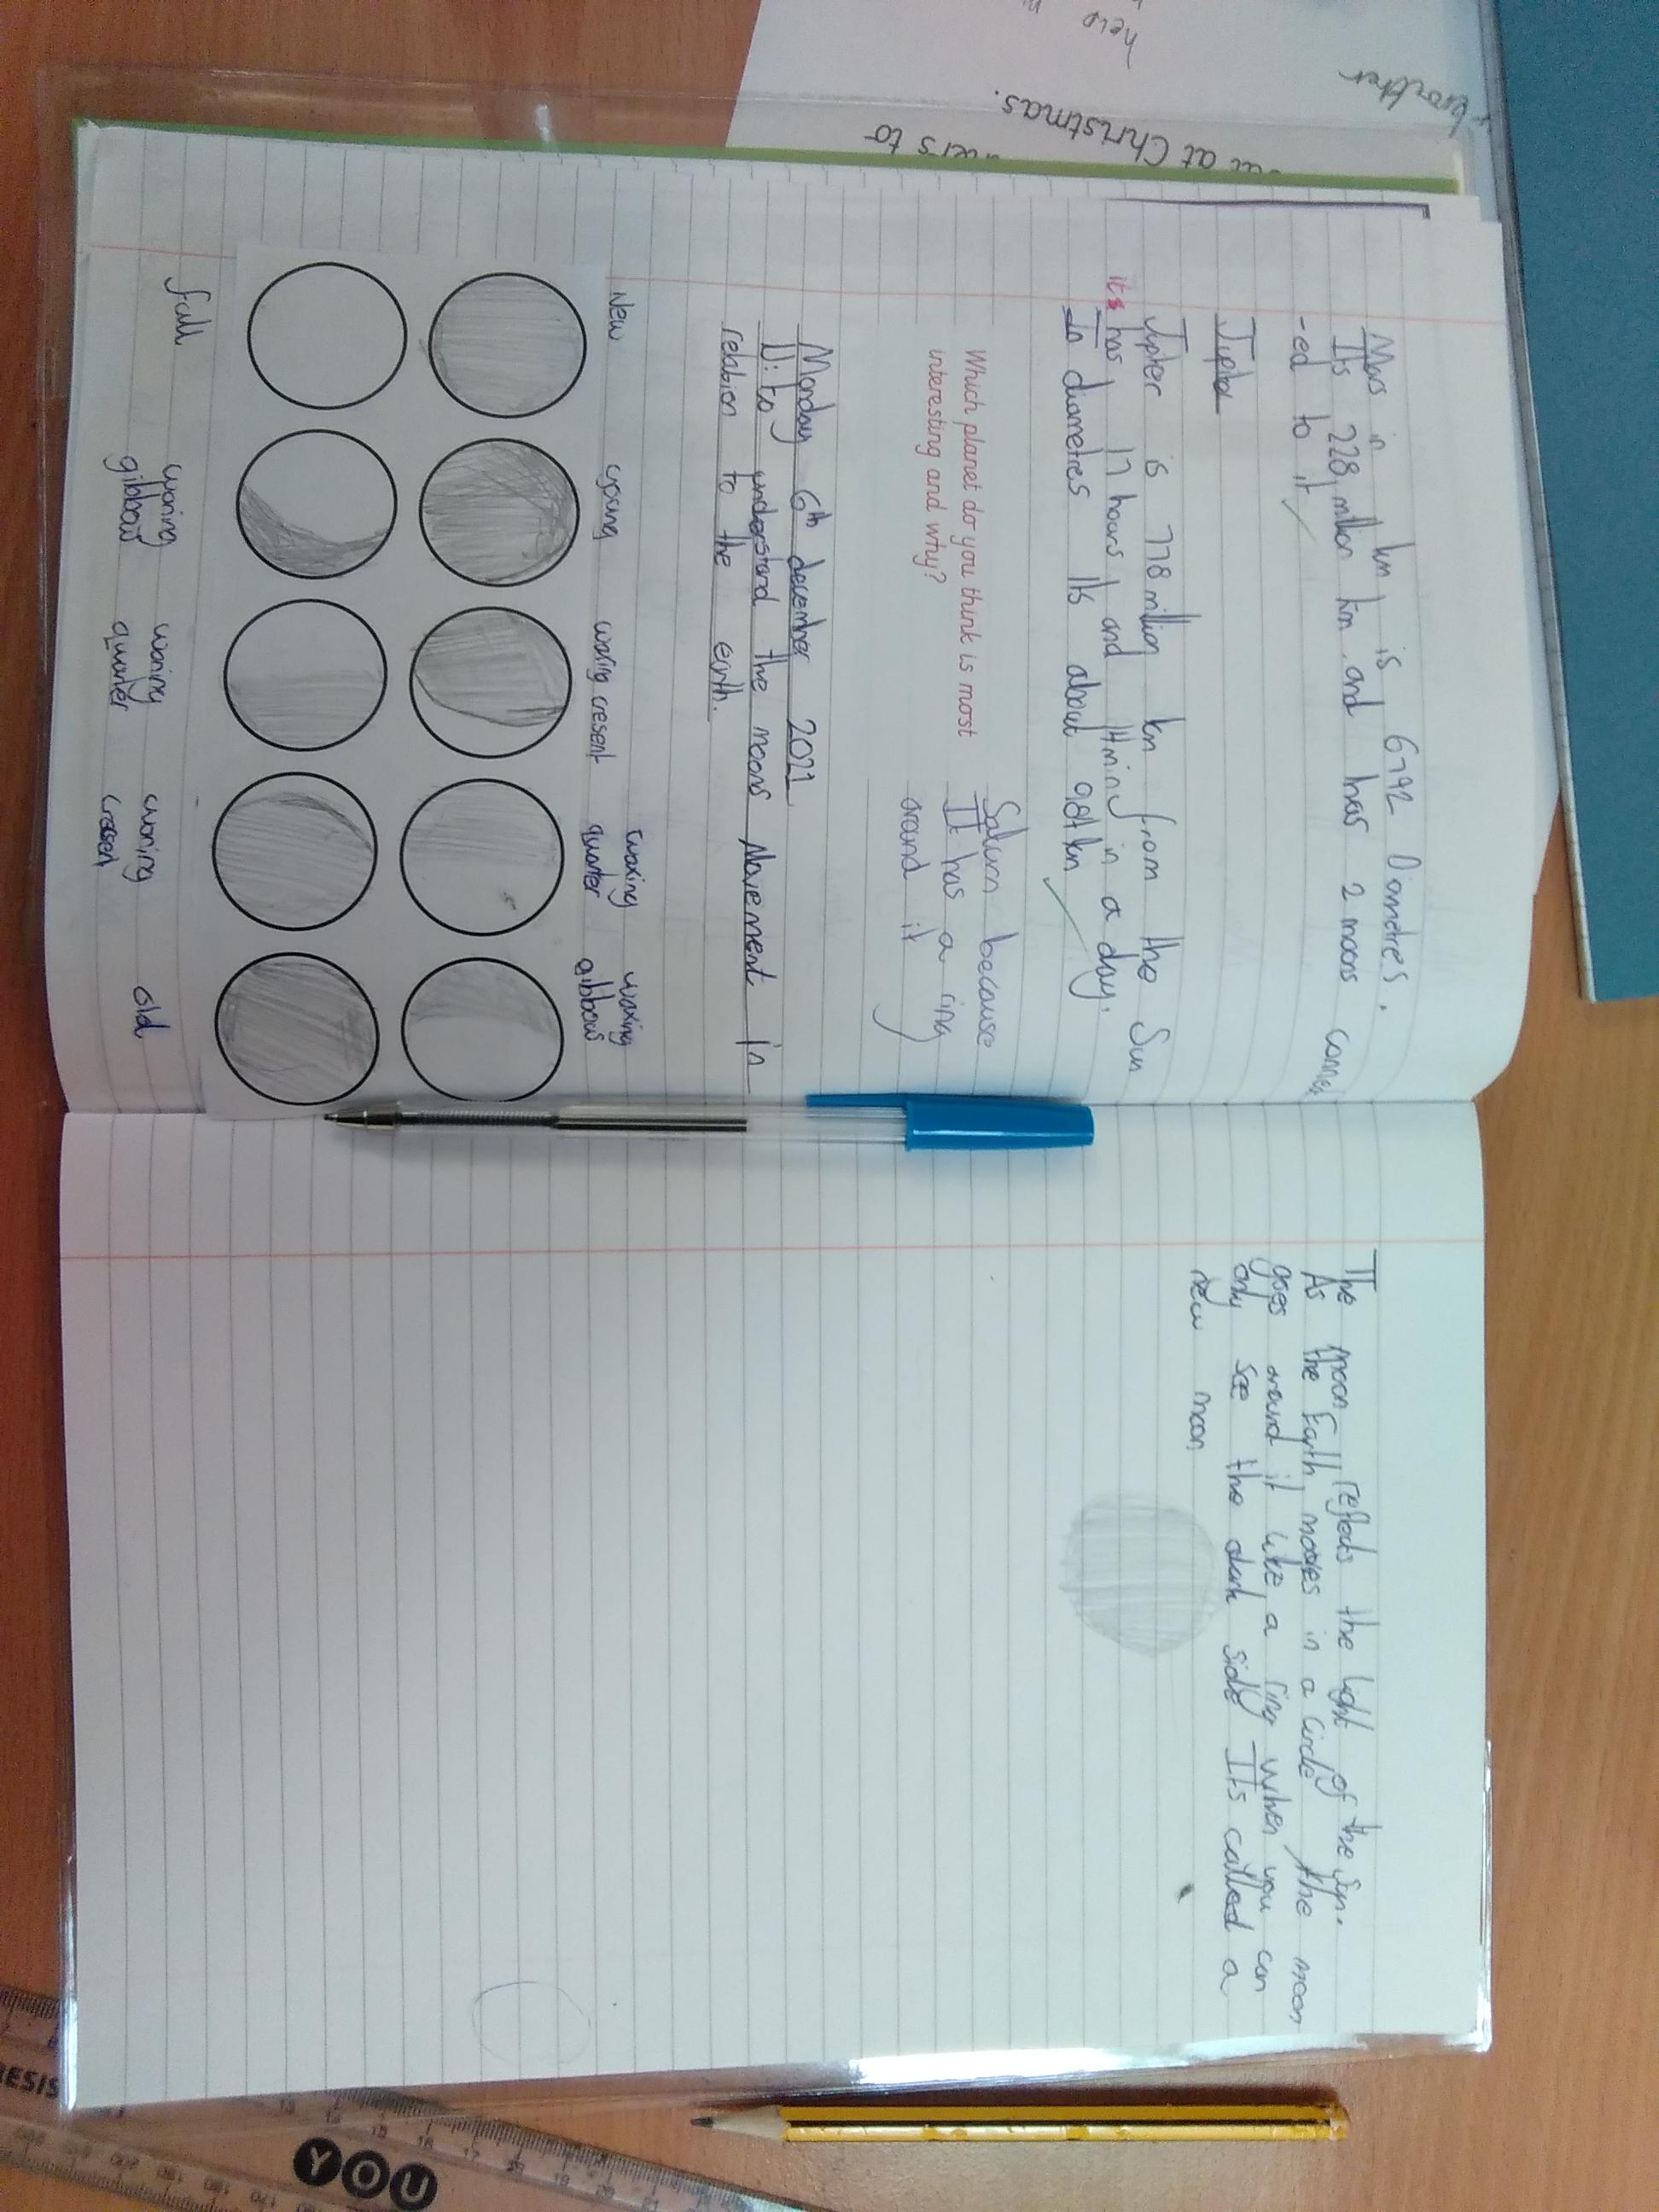 Mars in km is 6792 Diametres.
Its 228 million km and has 2 moons connect
-ed to it
Jupiter
Jupter is 778 million km from the Sun
it has 17 hours and 14miny in a day.
In diametres Its about 98tkm
Which planet do you think is most
interesting and why?
Saturn because
It has a ring
around it
Monday 6th december 2021
LI: to understand the moons Movement in
relation to the earth.
New young waxing cresent waxing quarter waxing gibbous
full waning gibbous waning quarter waning cresent old
The moon reflects the light of the Syn.
As the Earth moves in a circle the moon
goes around it like a ring when you can
only see the dark side Its called a
new moon
at Christmas.
to
help
brother
RESIS
YOU